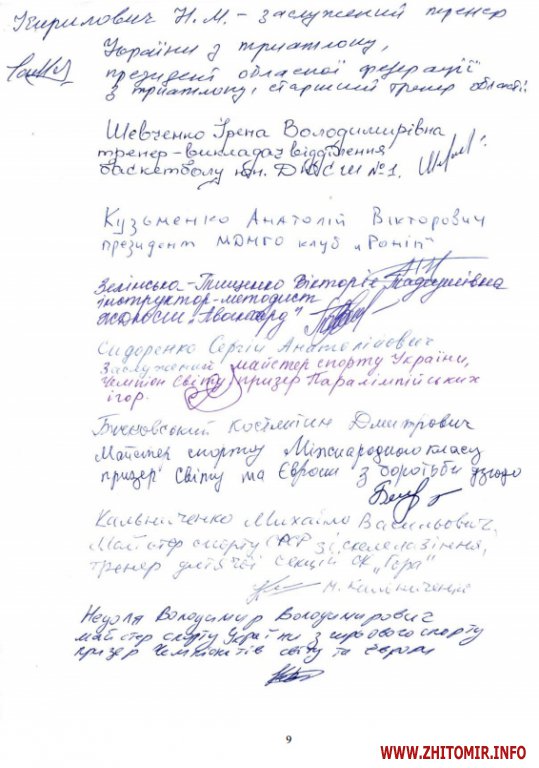 Кирилович Н.М. – заслужений тренер
України з триатлону,
президент обласної федерації
з триатлону, старший тренер області.
Шевченко Ірена Володимирівна
тренер-викладач відділення
баскетболу ДЮСШ №1.
Кузьменко Анатолій Вікторович
президент МДНГО клуб „Роніп"
Зелінська-Тищенко Вікторія Тадеушівна
інструктор-методист
„Авангард"
Сидоренко Сергій Анатолійович
Заслужений майстер спорту України,
Чемпіон Світу призер Паралімпійських
ігор.
Костянтин Дмитрович
Майстер спорту Міжнародного класу
призер Світу та Європи з боротьби дзюдо
Кальниченко Михайло Васильович,
Майстер спорту СРСР зі скелелазіння,
тренер дитячої секції СК „Гора"
М. Кальниченко
Недоля Володимир Володимирович
майстер спорту України з спорту
призер Чемпіонатів світу та Європи
9
WWW.ZHITOMIR.INFO